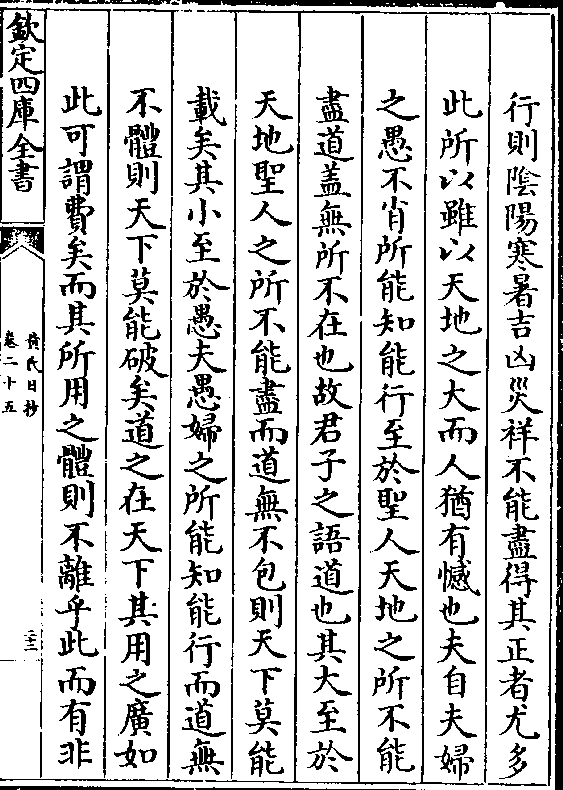 行則陰陽寒暑吉凶災祥不能盡得其正者尤多
此所以雖以天地之大而人猶有憾也夫自夫婦
之愚不肖所能知能行至於聖人天地之所不能
盡道盖無所不在也故君子之語道也其大至於
天地聖人之所不能盡而道無不包則天下莫能
載矣其小至於愚夫愚婦之所能知能行而道無
不體則天下莫能破矣道之在天下其用之廣如
此可謂費矣而其所用之體則不離乎此而有非
欽定四庫全書
黄氏日抄
卷二十五
二十二